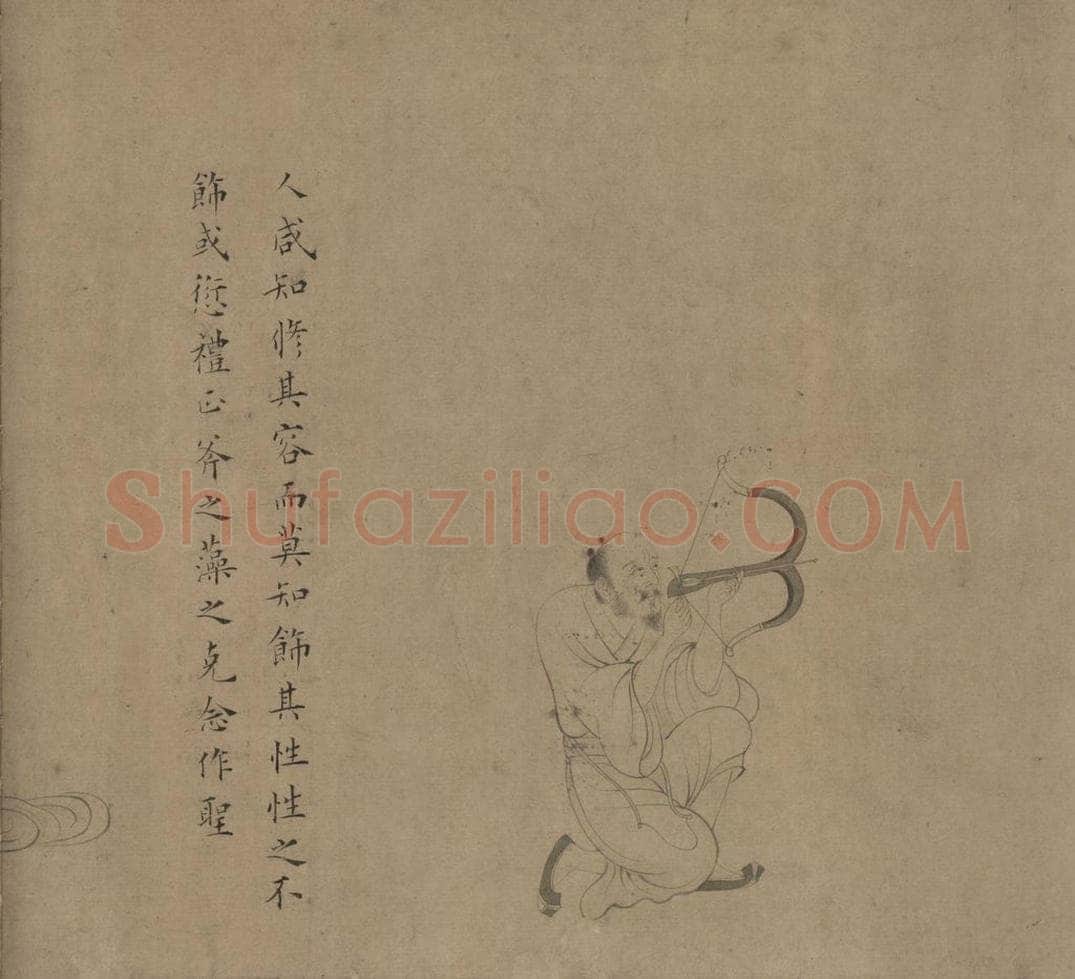 人咸知修其容而莫知飾其性性之不
飾或愆禮正斧之藻之克念作聖
Shufaziliao.COM